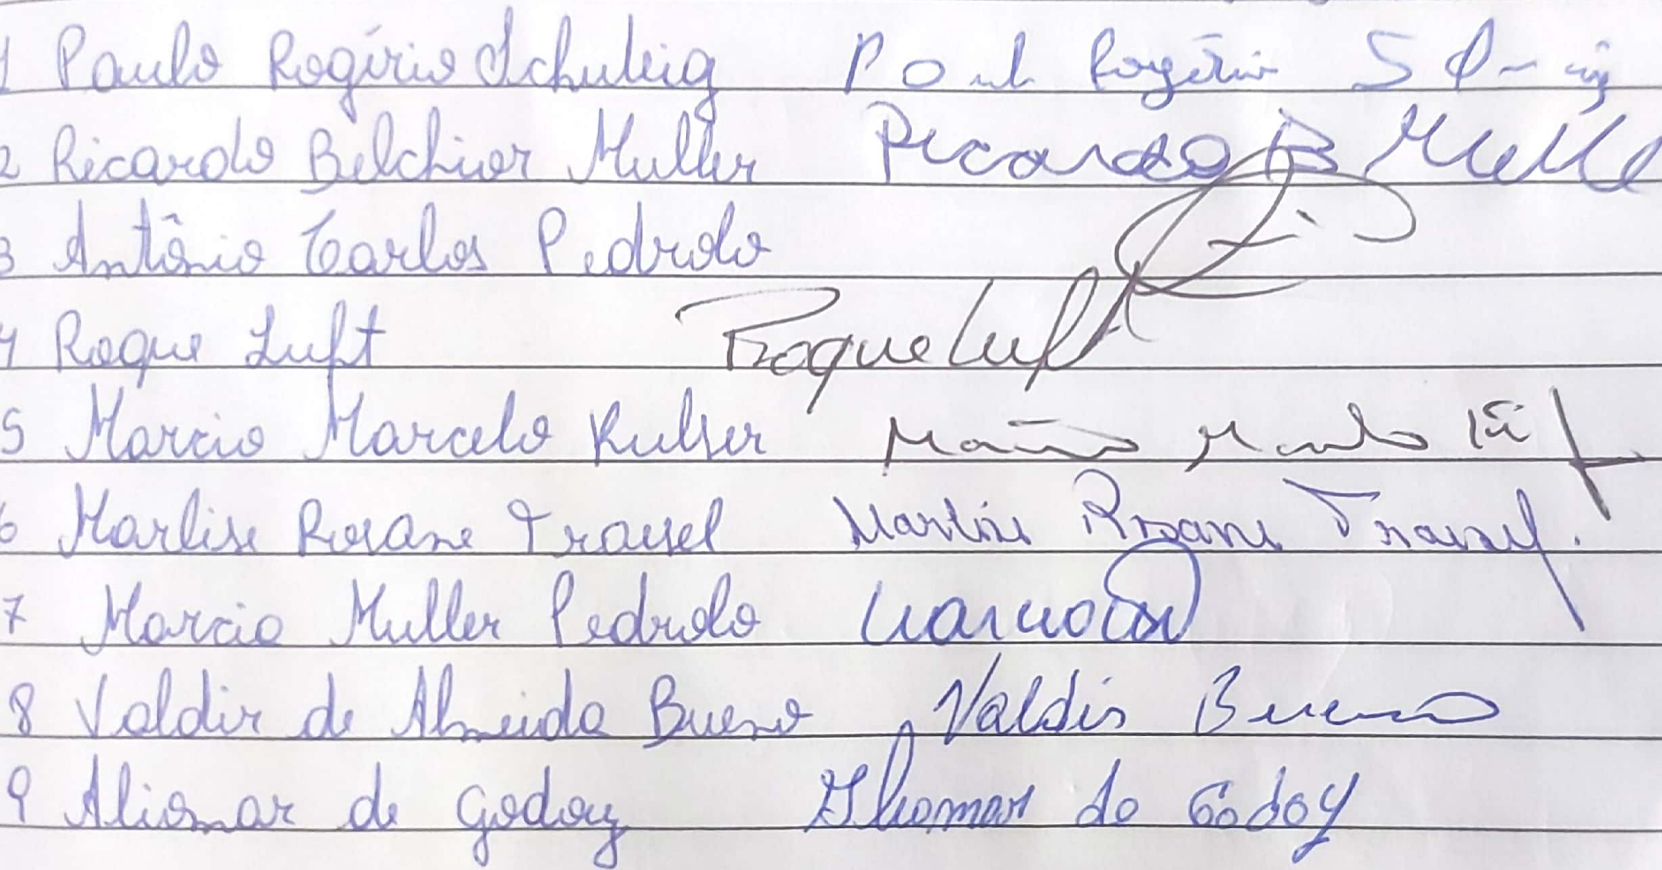 1 Paulo Rogério Schuleig Rogério
2 Ricardo Belchior Muller Ricardo B Muller
3 Antônio Carlos Pedrolo
4 Roque Luft Roque Luft
5 Marcio Marcelo
6 Marlise Rosane Trausel Marlise Rosane Trausel.
7 Marcia Muller Pedrolo
8 Valdir de Almeida Bueno Valdir Bueno
9 Aliomar de Godoy de Godoy